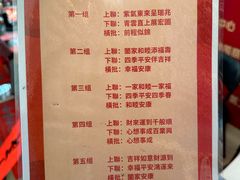 第一组
上聯：紫氣東來呈瑞兆
下聯：青雲直上展宏圖
橫批：前程似錦
第二组
上聯：闔家和睦添福壽
下聯：四季平安伴吉祥
橫批：幸福安康
第三组
上聯：一家和睦一家福
下聯：四季平安四季春
橫批：和睦安康
第四组
上聯：財來運到千般順
下聯：心想事成百業興
橫批：心想事成
第五组
上聯：吉祥如意財源到
下聯：幸福平安鴻運來
橫批：闔家安康